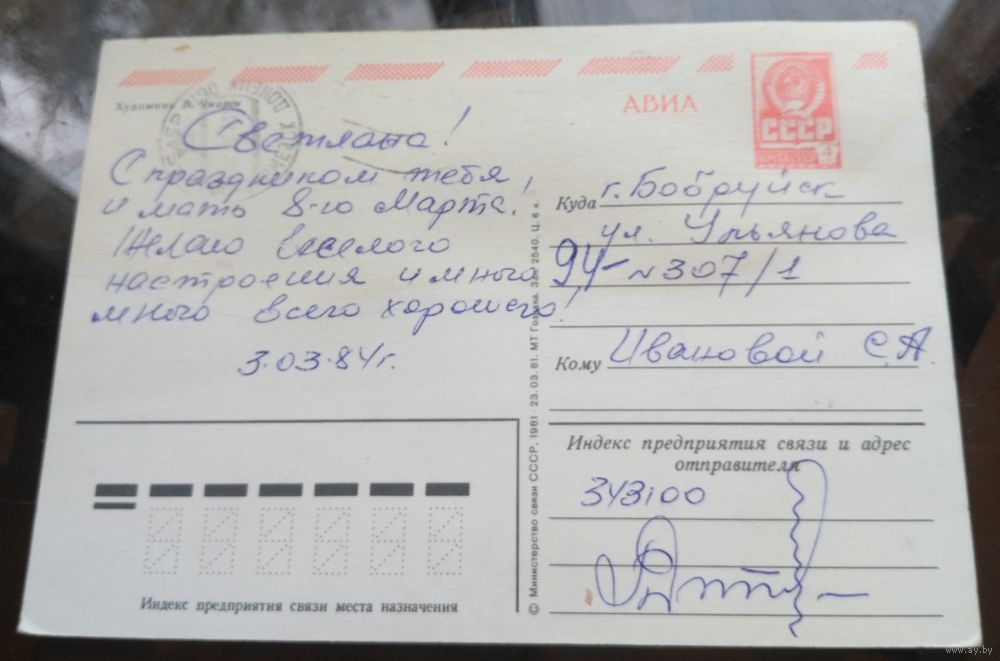 Художник В. Чмаров
АВИА
СССР
ПОЧТА СССР 4
Светлана!
С праздником тебя,
и мать 8-го Марта!
Желаю веселого
настроения и много
много всего хорошего!
3.03.84г.
Куда г. Бобруйск
ул. Ульянова
94- №307/1
Кому Ивановой С.А.
© Министерство связи СССР, 1981 · 23. 03. 81. МТ Гознака. Зак 2540. Ц. 6 к.
Индекс предприятия связи и адрес
отправителя
343100
Индекс предприятия связи места назначения
www.ay.by